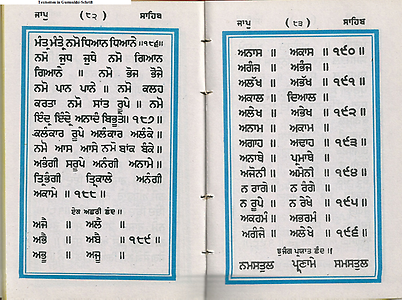 Textseiten in Gurmukhi-Schrift
ਜਾਪੁ ( ੮੨ ) ਸਾਹਿਬ
ਮੰਤ੍ਰ ਮੰਤ੍ਰੰ ਨਮੋ ਧਿਆਨ ਧਿਆਨੇ ॥੧੮੬॥
ਨਮੋ ਜੁਧ ਜੁਧੇ ਨਮੋ ਗਿਆਨ
ਗਿਆਨੇ ॥ ਨਮੋ ਭੋਜ ਭੋਜੇ
ਨਮੋ ਪਾਨ ਪਾਨੇ ॥ ਨਮੋ ਕਲਹ
ਕਰਤਾ ਨਮੋ ਸਾਂਤ ਰੂਪੇ ॥ ਨਮੋ
ਇੰਦ੍ਰ ਇੰਦ੍ਰੇ ਅਨਾਦੰ ਬਿਭੂਤੇ ॥੧੮੭॥
ਕਲੰਕਾਰ ਰੂਪੇ ਅਲੰਕਾਰ ਅਲੰਕੇ ॥
ਨਮੋ ਆਸ ਆਸੇ ਨਮੋ ਬਾਂਕ ਬੰਕੇ ॥
ਅਭੰਗੀ ਸਰੂਪੇ ਅਨੰਗੀ ਅਨਾਮੇ ॥
ਤ੍ਰਿਭੰਗੀ ਤ੍ਰਿਕਾਲੇ ਅਨੰਗੀ
ਅਕਾਮੇ ॥ ੧੮੮ ॥
ਏਕ ਅਛਰੀ ਛੰਦ ॥
ਅਜੈ ॥ ਅਲੈ ॥
ਅਭੈ ॥ ਅਬੈ ॥ ੧੮੯ ॥
ਅਭੂ ॥ ਅਜੂ ॥
ਜਾਪੁ ( ੮੩ ) ਸਾਹਿਬ
ਅਨਾਸ ॥ ਅਕਾਸ ॥ ੧੯੦ ॥
ਅਗੰਜ ॥ ਅਭੰਜ ॥
ਅਲੱਖ ॥ ਅਭੱਖ ॥ ੧੯੧ ॥
ਅਕਾਲ ॥ ਦਿਆਲ ॥
ਅਲੇਖ ॥ ਅਭੇਖ ॥ ੧੯੨ ॥
ਅਨਾਮ ॥ ਅਕਾਮ ॥
ਅਗਾਹ ॥ ਅਢਾਹ ॥ ੧੯੩ ॥
ਅਨਾਥੇ ॥ ਪ੍ਰਮਾਥੇ ॥
ਅਜੋਨੀ ॥ ਅਮੋਨੀ ॥ ੧੯੪ ॥
ਨ ਰਾਗੇ ॥ ਨ ਰੰਗੇ ॥
ਨ ਰੂਪੇ ॥ ਨ ਰੇਖੇ ॥ ੧੯੫ ॥
ਅਕਰਮੰ ॥ ਅਭਰਮੰ ॥
ਅਗੰਜੇ ॥ ਅਲੇਖੇ ॥ ੧੯੬ ॥
ਭੁਜੰਗ ਪ੍ਰਯਾਤ ਛੰਦ ॥
ਨਮਸਤੁਲ ਪ੍ਰਣਾਮੇ ਸਮਸਤੁਲ